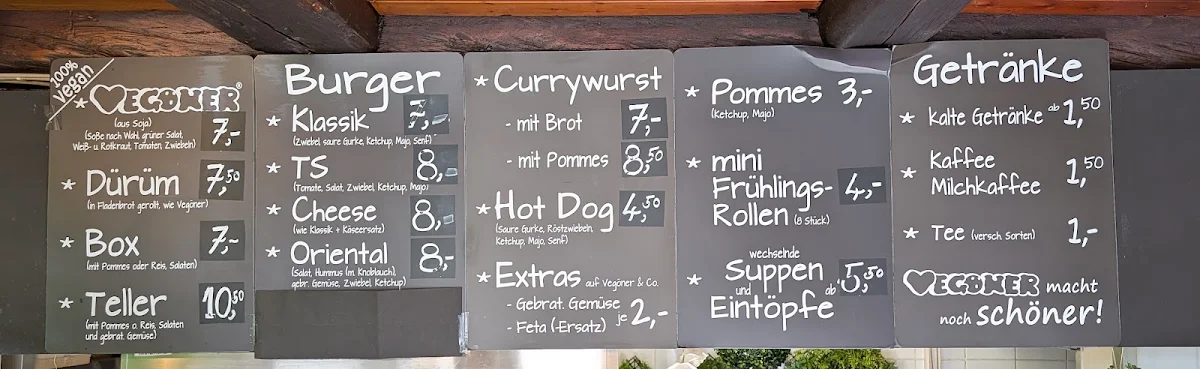 100%
vegan
* VEGÖNER®
(aus Soja)
(Soße nach Wahl, grüner Salat, 7,-
Weiß- u. Rotkraut, Tomaten, Zwiebeln)
* Dürüm 7,50
(in Fladenbrot gerollt, wie Vegöner)
* Box 7,-
(mit Pommes oder Reis, Salaten)
* Teller 10,50
(mit Pommes o. Reis, Salaten
und gebrat. Gemüse)
Burger
* Klassik 7,-
(Zwiebel, saure Gurke, Ketchup, Majo, Senf)
* TS 8,-
(Tomate, Salat, Zwiebel, Ketchup, Majo)
* Cheese 8,-
(wie Klassik + Käseersatz)
* Oriental 8,-
(Salat, Hummus (m. Knoblauch),
gebr. Gemüse, Zwiebel, Ketchup)
* Currywurst
- mit Brot 7,-
- mit Pommes 8,50
* Hot Dog 4,50
(Saure Gurke, Röstzwiebeln,
Ketchup, Majo, Senf)
* Extras auf Vegöner & Co.
- Gebrat. Gemüse
- Feta (-Ersatz) je 2,-
* Pommes 3,-
(Ketchup, Majo)
* mini
Frühlings- 4,-
Rollen (8 Stück)
wechselnde
* Suppen ab 5,50
und
Eintöpfe
Getränke
* kalte Getränke ab 1,50
* Kaffee
Milchkaffee 1,50
* Tee (versch. Sorten) 1,-
VEGÖNER macht
noch schöner!